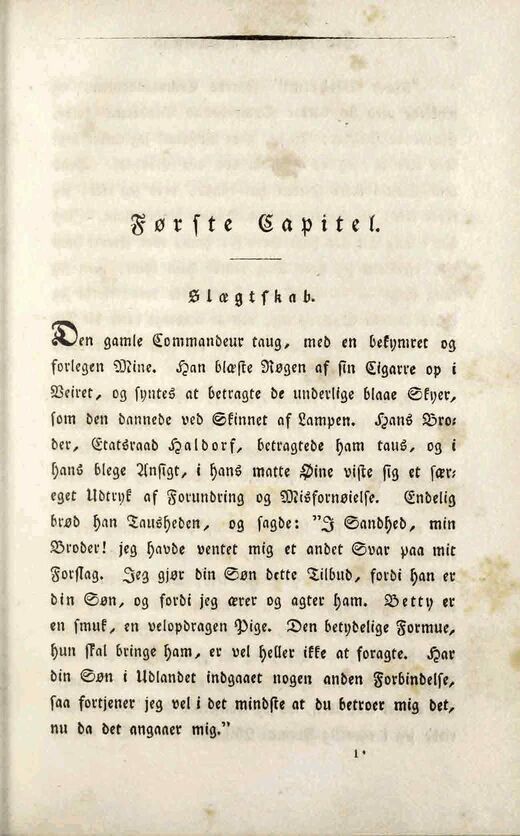 Første Capitel.
Slægtskab.
Den gamle Commandeur taug, med en bekymret og
forlegen Mine. Han blæste Røgen af sin Cigarre op i
Veiret, og syntes at betragte de underlige blaae Skyer,
som den dannede ved Skinnet af Lampen. Hans Bro-
der, Etatsraad Haldorf, betragtede ham taus, og i
hans blege Ansigt, i hans matte Øine viste sig et sær-
eget Udtryk af Forundring og Misfornøielse. Endelig
brød han Tausheden, og sagde: "I Sandhed, min
Broder! jeg havde ventet mig et andet Svar paa mit
Forslag. Jeg gjør din Søn dette Tilbud, fordi han er
din Søn, og fordi jeg ærer og agter ham. Betty er
en smuk, en velopdragen Pige. Den betydelige Formue,
hun skal bringe ham, er vel heller ikke at foragte. Har
din Søn i Udlandet indgaaet nogen anden Forbindelse,
saa fortjener jeg vel i det mindste at du betroer mig det,
nu da det angaaer mig."
1*